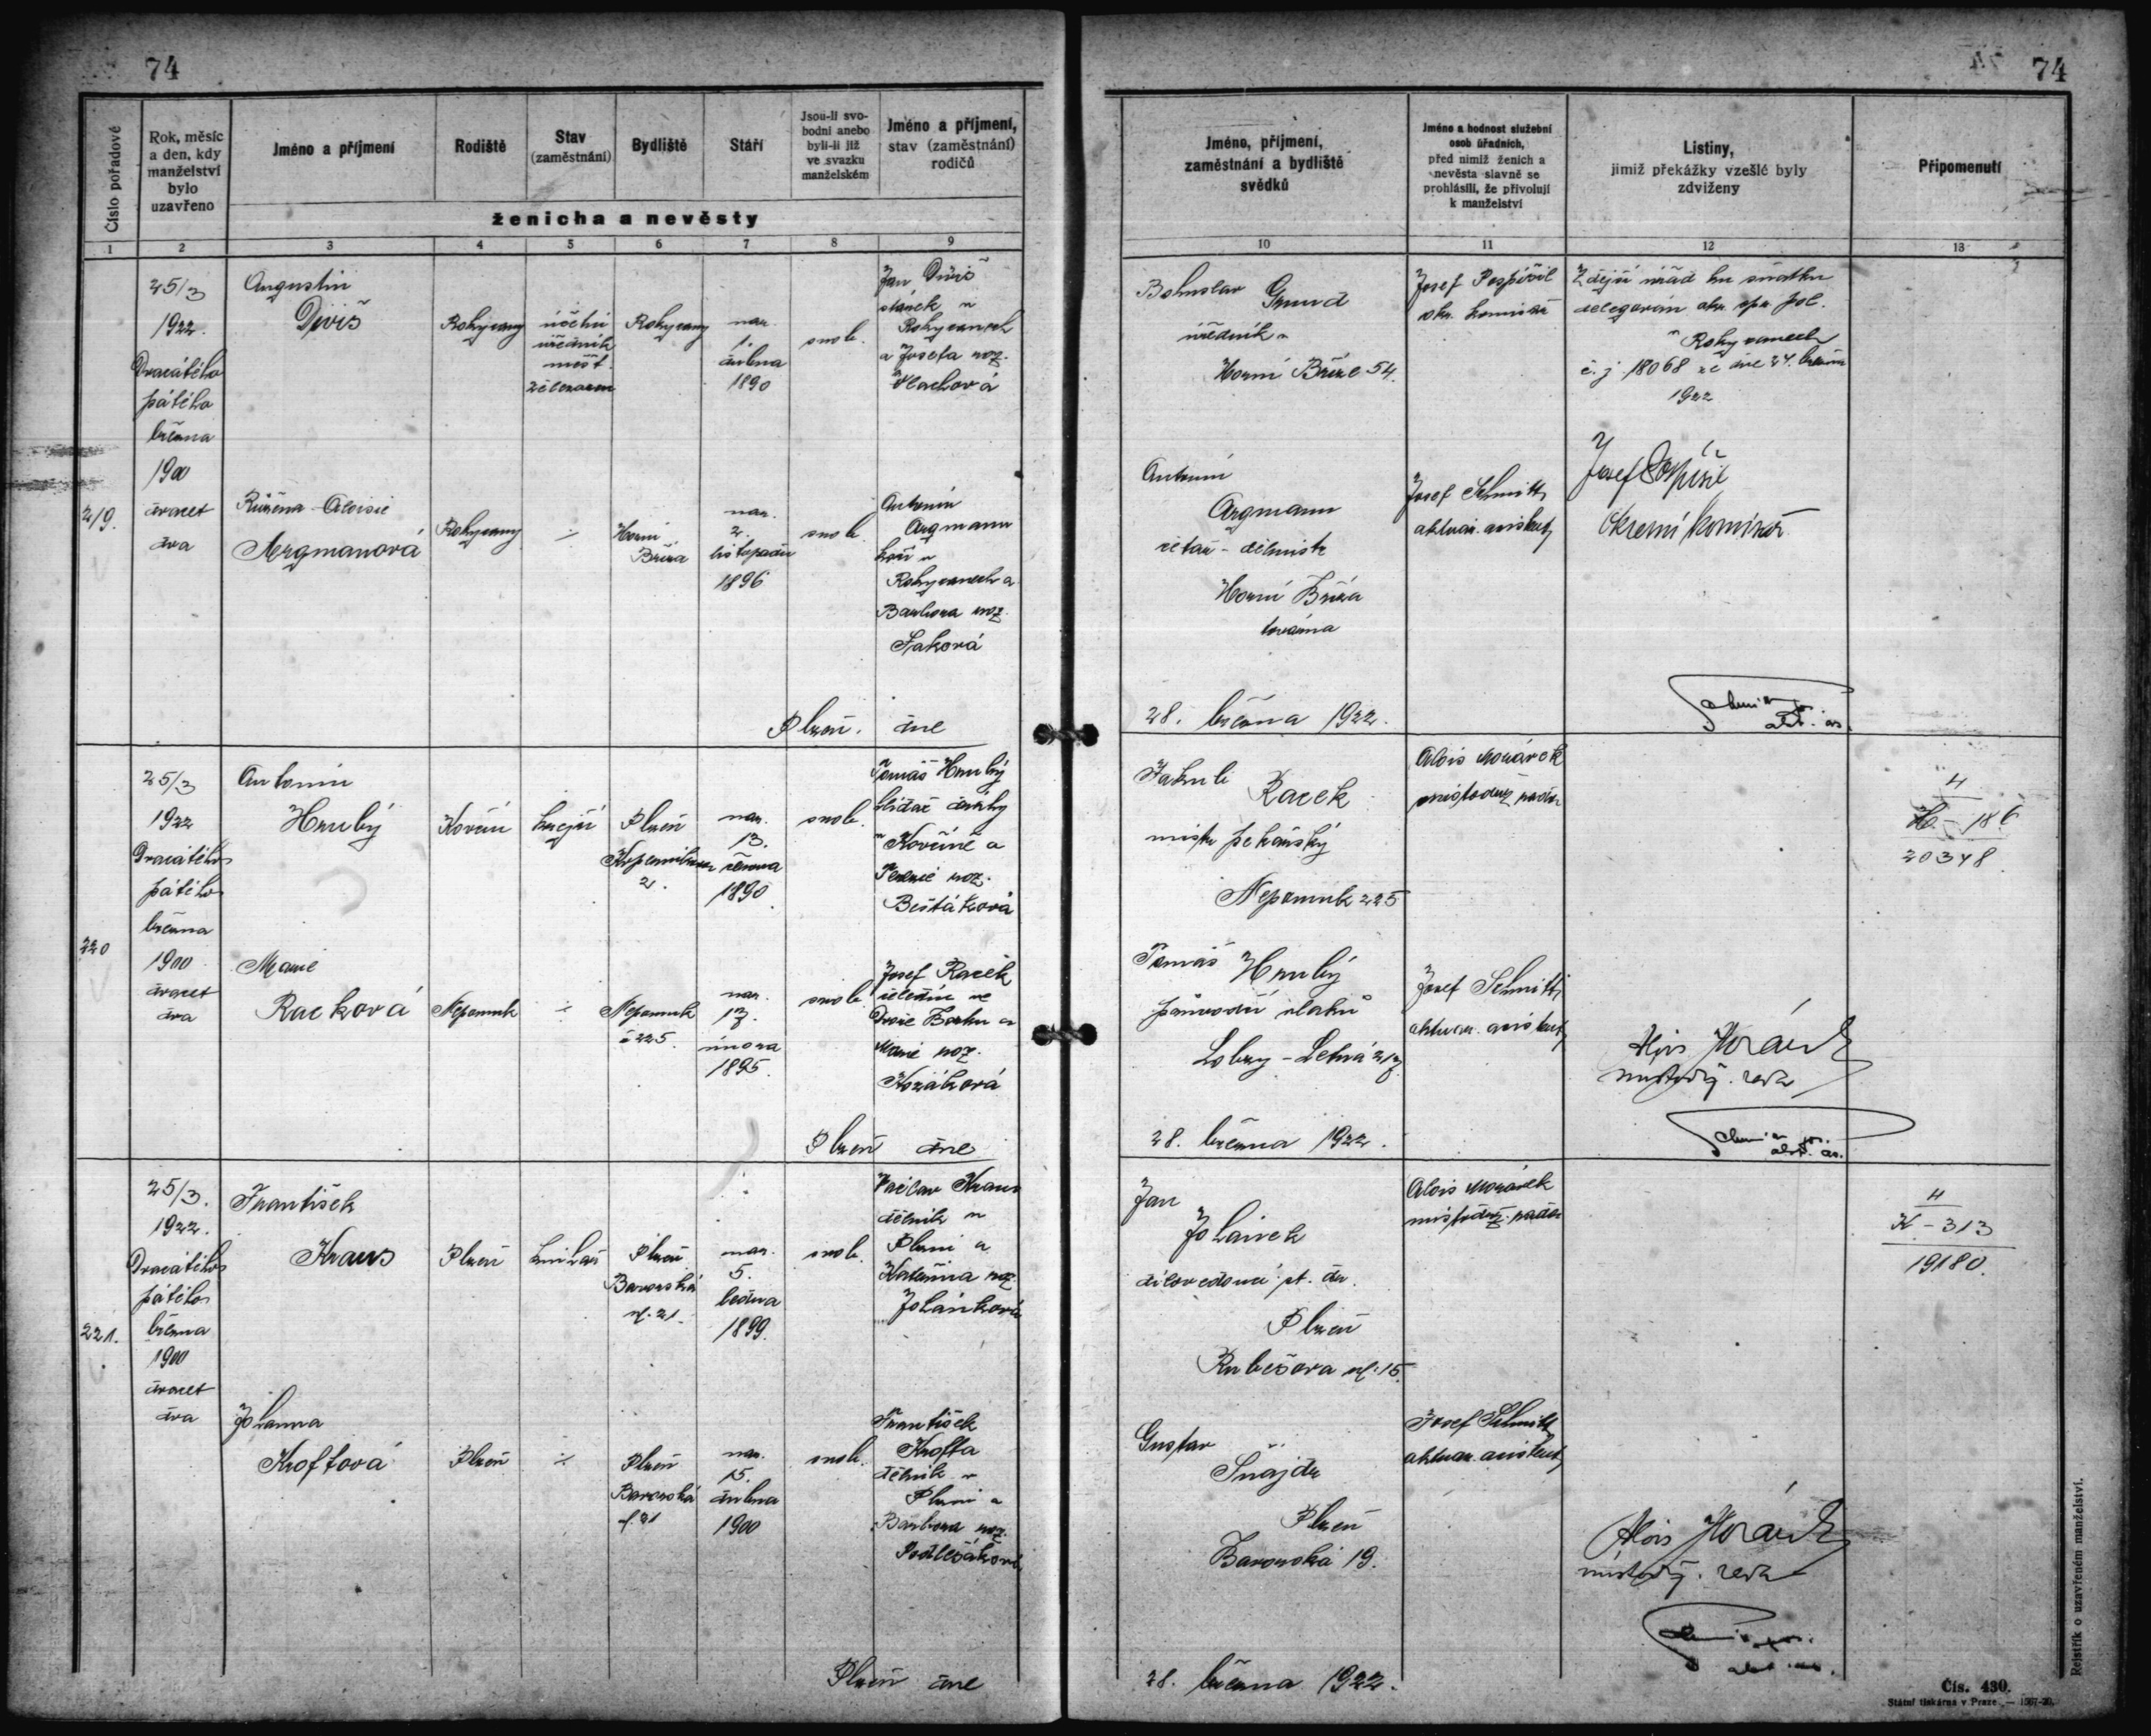 74
74
Číslo pořadové
Rok, měsíc
a den, kdy
manželství
bylo
uzavřeno
Jméno a příjmení
Rodiště
Stav
(zaměstnání)
Bydliště
Stáří
Jsou-li svo-
bodni anebo
byli-li již
ve svazku
manželském
Jméno a příjmení,
stav (zaměstnání)
rodičů
ženicha a nevěsty
1 2 3 4 5 6 7 8 9
Jméno, příjmení,
zaměstnání a bydliště
svědků
Jméno a hodnost služební
osob úřadních,
před nimiž ženich a
nevěsta slavně se
prohlásili, že přivolují
k manželství
Listiny,
jimiž překážky vzešlé byly
zdviženy
Připomenutí
10 11 12 13
219.
25/3
1922.
Dvacátého
pátého
března
1900
dvacet
dva
Augustin
Diviš
Rokycany
účetní
úředník
měšť.
železáren
Rokycany
nar.
1.
dubna
1890
svob.
Jan Diviš
v
Rokycanech
a Josefa roz.
Vlachová
Růžena - Aloisie
Aegmanová
Rokycany
÷
Horní
Bříza
nar.
2.
listopadu
1896
svob.
Antonín
Argmann
v
Rokycanech a
Barbora roz.
Faková
Plzeň, dne
Bohuslav Grund
úředník v
Horní Bříze 54.
Josef Pospíšil
okr. komisař
Zdejší úřad ku sňatku
delegován okr. spr. pol.
v Rokycanech
č. j. 18068 ze dne 24. března
1922
Antonín
Argmann
Horní Bříza
továrna
Josef Schmitt,
aktuar. asistent
Josef Pospíšil
Okresní komisař
28. března 1922.
akt. as.
220
25/3
1922
Dvacátého
pátého
března
1900
dvacet
dva
Antonín
Hrubý
Kovčín
krejčí
Plzeň
Koperníkova
2.
nar.
13.
června
1890
svob.
Tomáš Hrubý
hlídač dráhy
v Kovčíně a
Terezie roz.
Bešťáková
Marie
Racková
Nepomuk
÷
Nepomuk
č 225.
nar.
17.
února
1895.
svob.
Josef Racek
ve
Dvoře Borku a
Marie roz.
Kozáková
Plzeň dne
Jakub Racek
mistr pekařský
Nepomuk 225
Alois Morávek
místodrž. rada
4
H - 186
20348
Tomáš Hrubý
průvodčí vlaků
Lobzy - Letná 217
Josef Schmitt,
aktuar. asistent
Alois Morávek
místodrž. rada
28. března 1922.
akt. as.
221.
25/3.
1922.
Dvacátého
pátého
března
1900
dvacet
dva
František
Kraus
Plzeň
knihař
Plzeň
Bavorská
ul. 21.
nar.
5.
ledna
1899.
svob.
Václav Kraus
dělník v
Plzni a
Kateřina roz.
Johánková
Johanna
Kroftová
Plzeň
÷
Plzeň
Bavorská
č. 21
nar.
15.
dubna
1900
svob.
František
Krofta
dělník v
Plzni a
Barbora roz.
Podlešáková
Plzeň dne
Jan
Johánek
dílovedoucí st. dr.
Plzeň
Rubešova ul. 15.
Alois Morávek
místodrž. rada
4
K - 313
19180.
Gustav
Šnajdr
Plzeň
Bavorská 19.
Josef Schmitt,
aktuar. asistent
Alois Morávek
místodrž. rada
akt. as.
28. března 1922.
Rejstřík o uzavřeném manželství.
Čís. 430.
Státní tiskárna v Praze. — 1567-20.